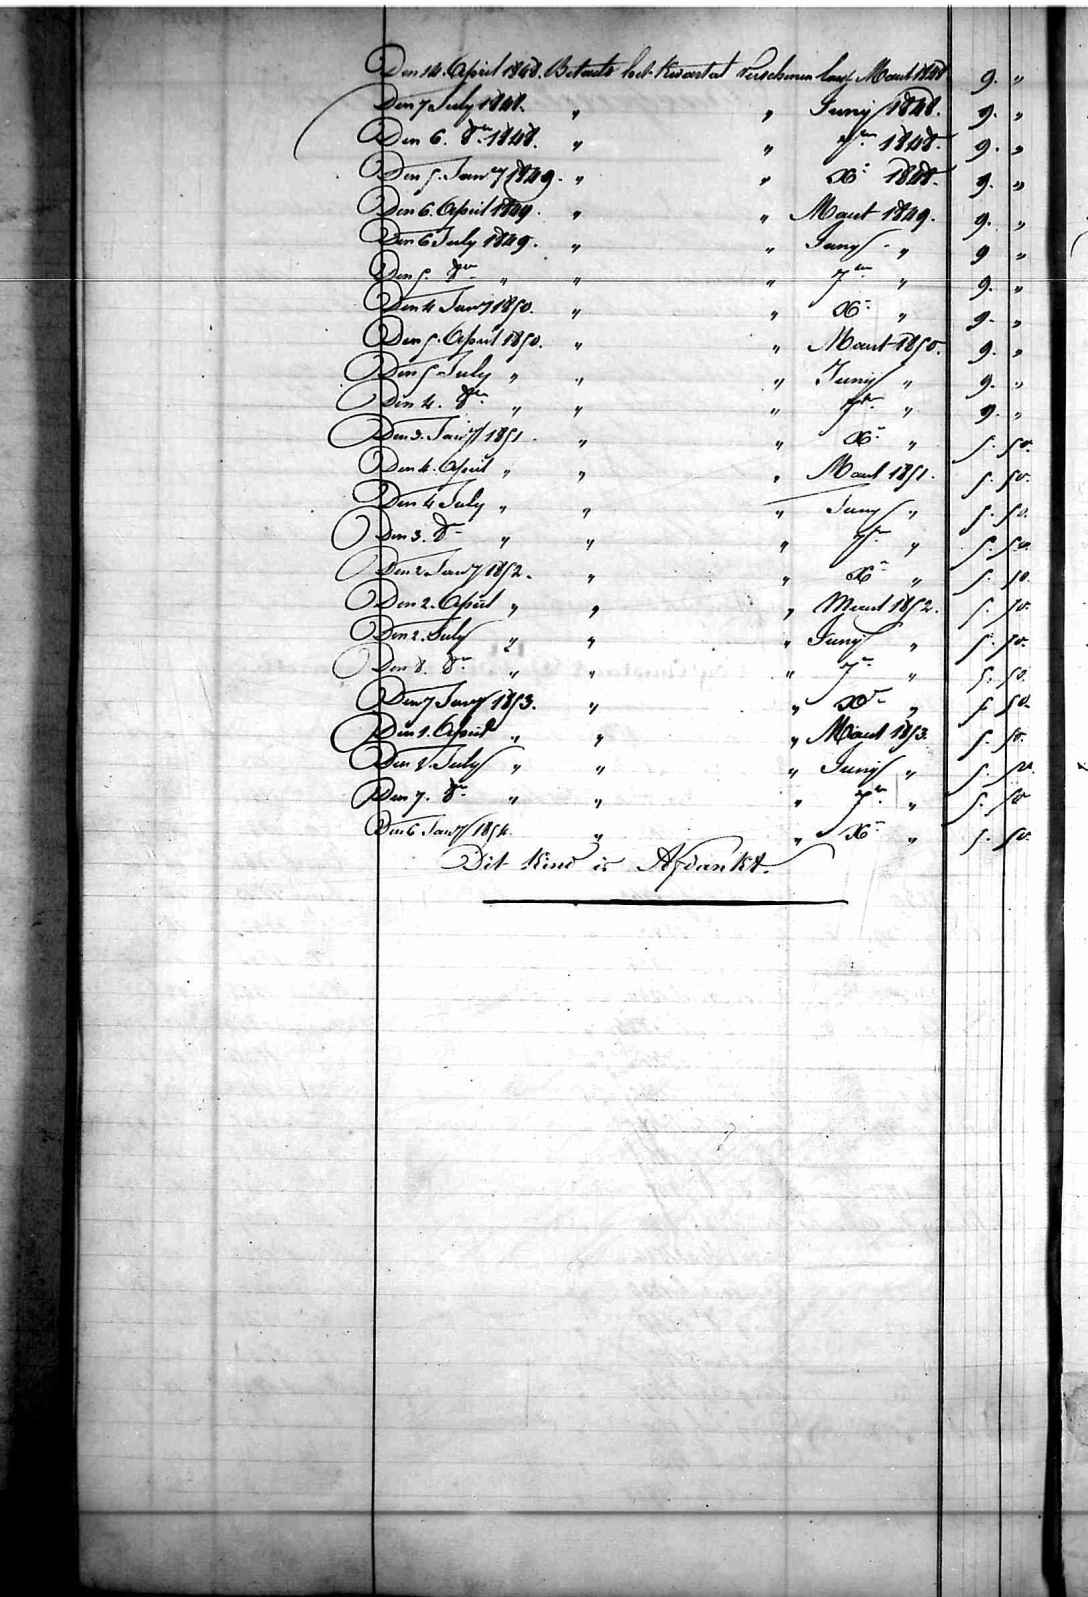 Den 14. April 1848. Betaald het Kwartal verschenen Maart 1848 9. "
Den 7 July 1848. " " Junij 1848. 9. "
Den 6. 8br 1848. " " 7br 1848. 9. "
Den 5. Janrij 1849. " " Xr 1848. 9. "
Den 6. April 1849. " " Maart 1849. 9. "
Den 6 July 1849. " " Junij " 9 "
Den 5. 8br " " " 7br " 9. "
Den 4 Janrij 1850. " " Xr " 9. "
Den 5. April 1850. " " Maart 1850. 9. "
Den 5 July " " " Junij " 9. "
Den 4. 8br " " " 7br " 9. "
Den 3. Janrij 1851. " " Xr " 5. 50.
Den 4. April " " " Maart 1851. 5. 50.
Den 4 July " " " Junij " 5. 50.
Den 3. 8r " " " 7r " 5. 50.
Den 2 Janrij 1852. " " Xr " 5. 50.
Den 2. April " " " Maart 1852. 5. 50.
Den 2. July " " " Junij " 5. 50.
Den 8. 8r " " " 7r " 5. 50.
Den 7 Janrij 1853. " " Xr " 5. 50.
Den 1. April " " " Maart 1853. 5. 50.
Den 2 July " " " Junij " 5. 50.
Den 7. 8r " " " 7br " 5. 50
Den 6 Janrij 1854. " " Xr " 5. 50.
Dit Kind is Afdankt.